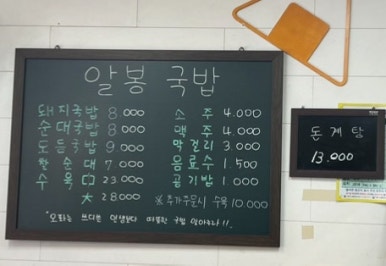 알봉 국밥
돼지국밥 8 000
순대국밥 8 000
모듬국밥 9 000
찰순대 7 000
수육 中 23 000
大 28 000
소주 4.000
맥주 4.000
막걸리 3.000
음료수 1.500
공기밥 1 000
※ 추가주문시 수육 10.000
돈계탕
13.000